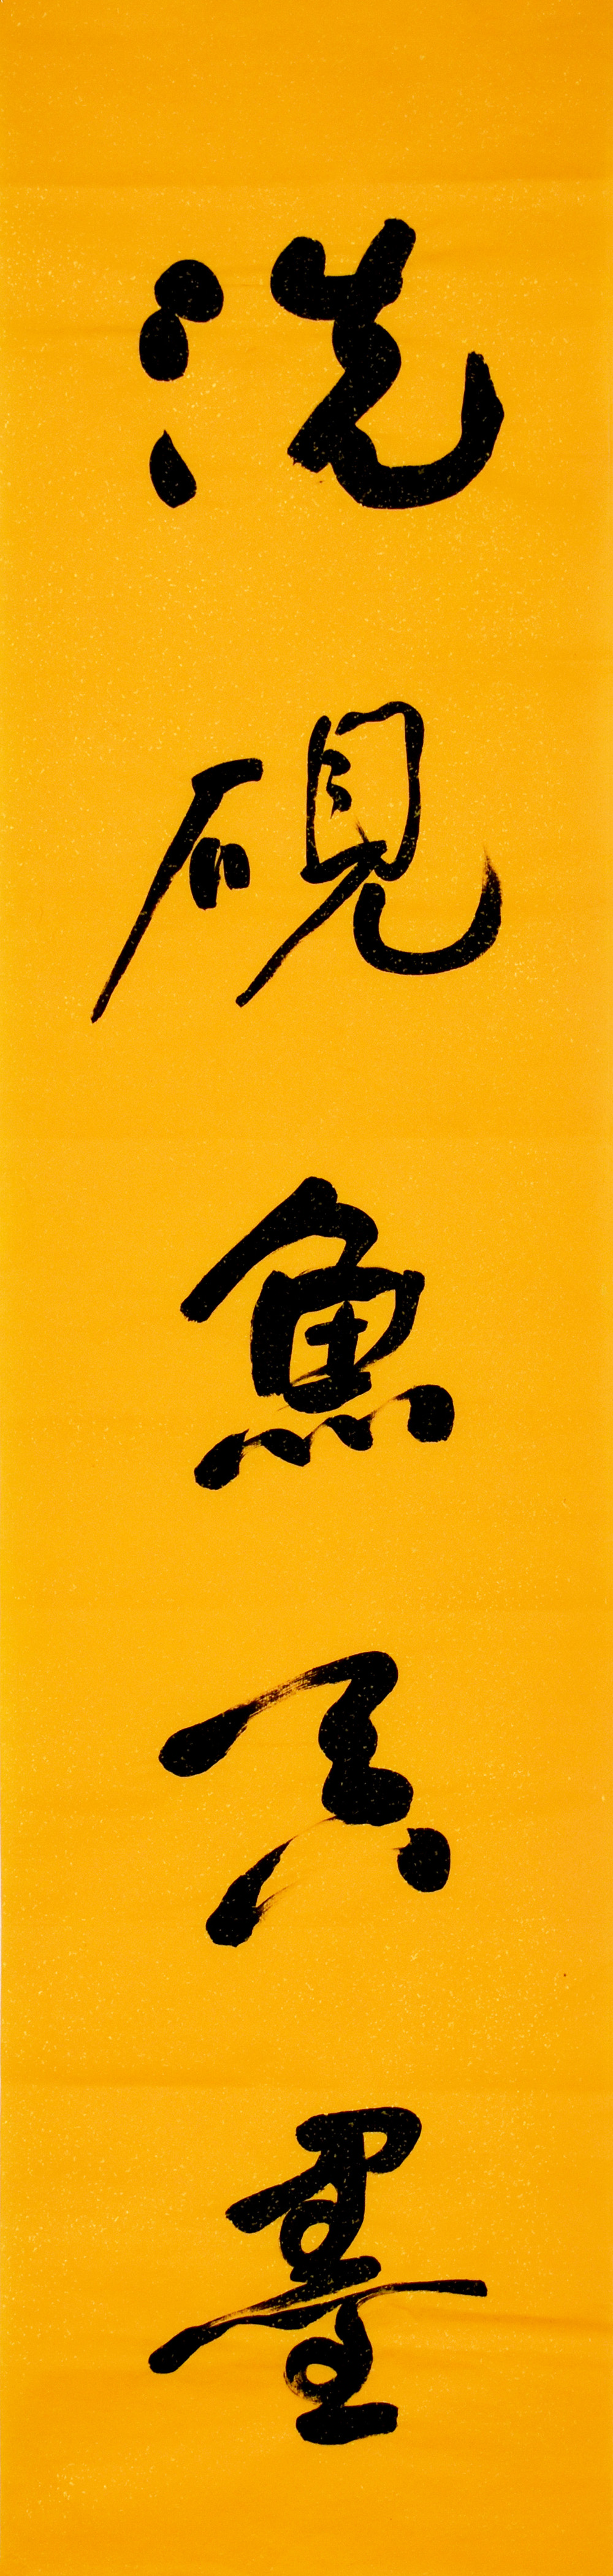 洗硯魚吞墨